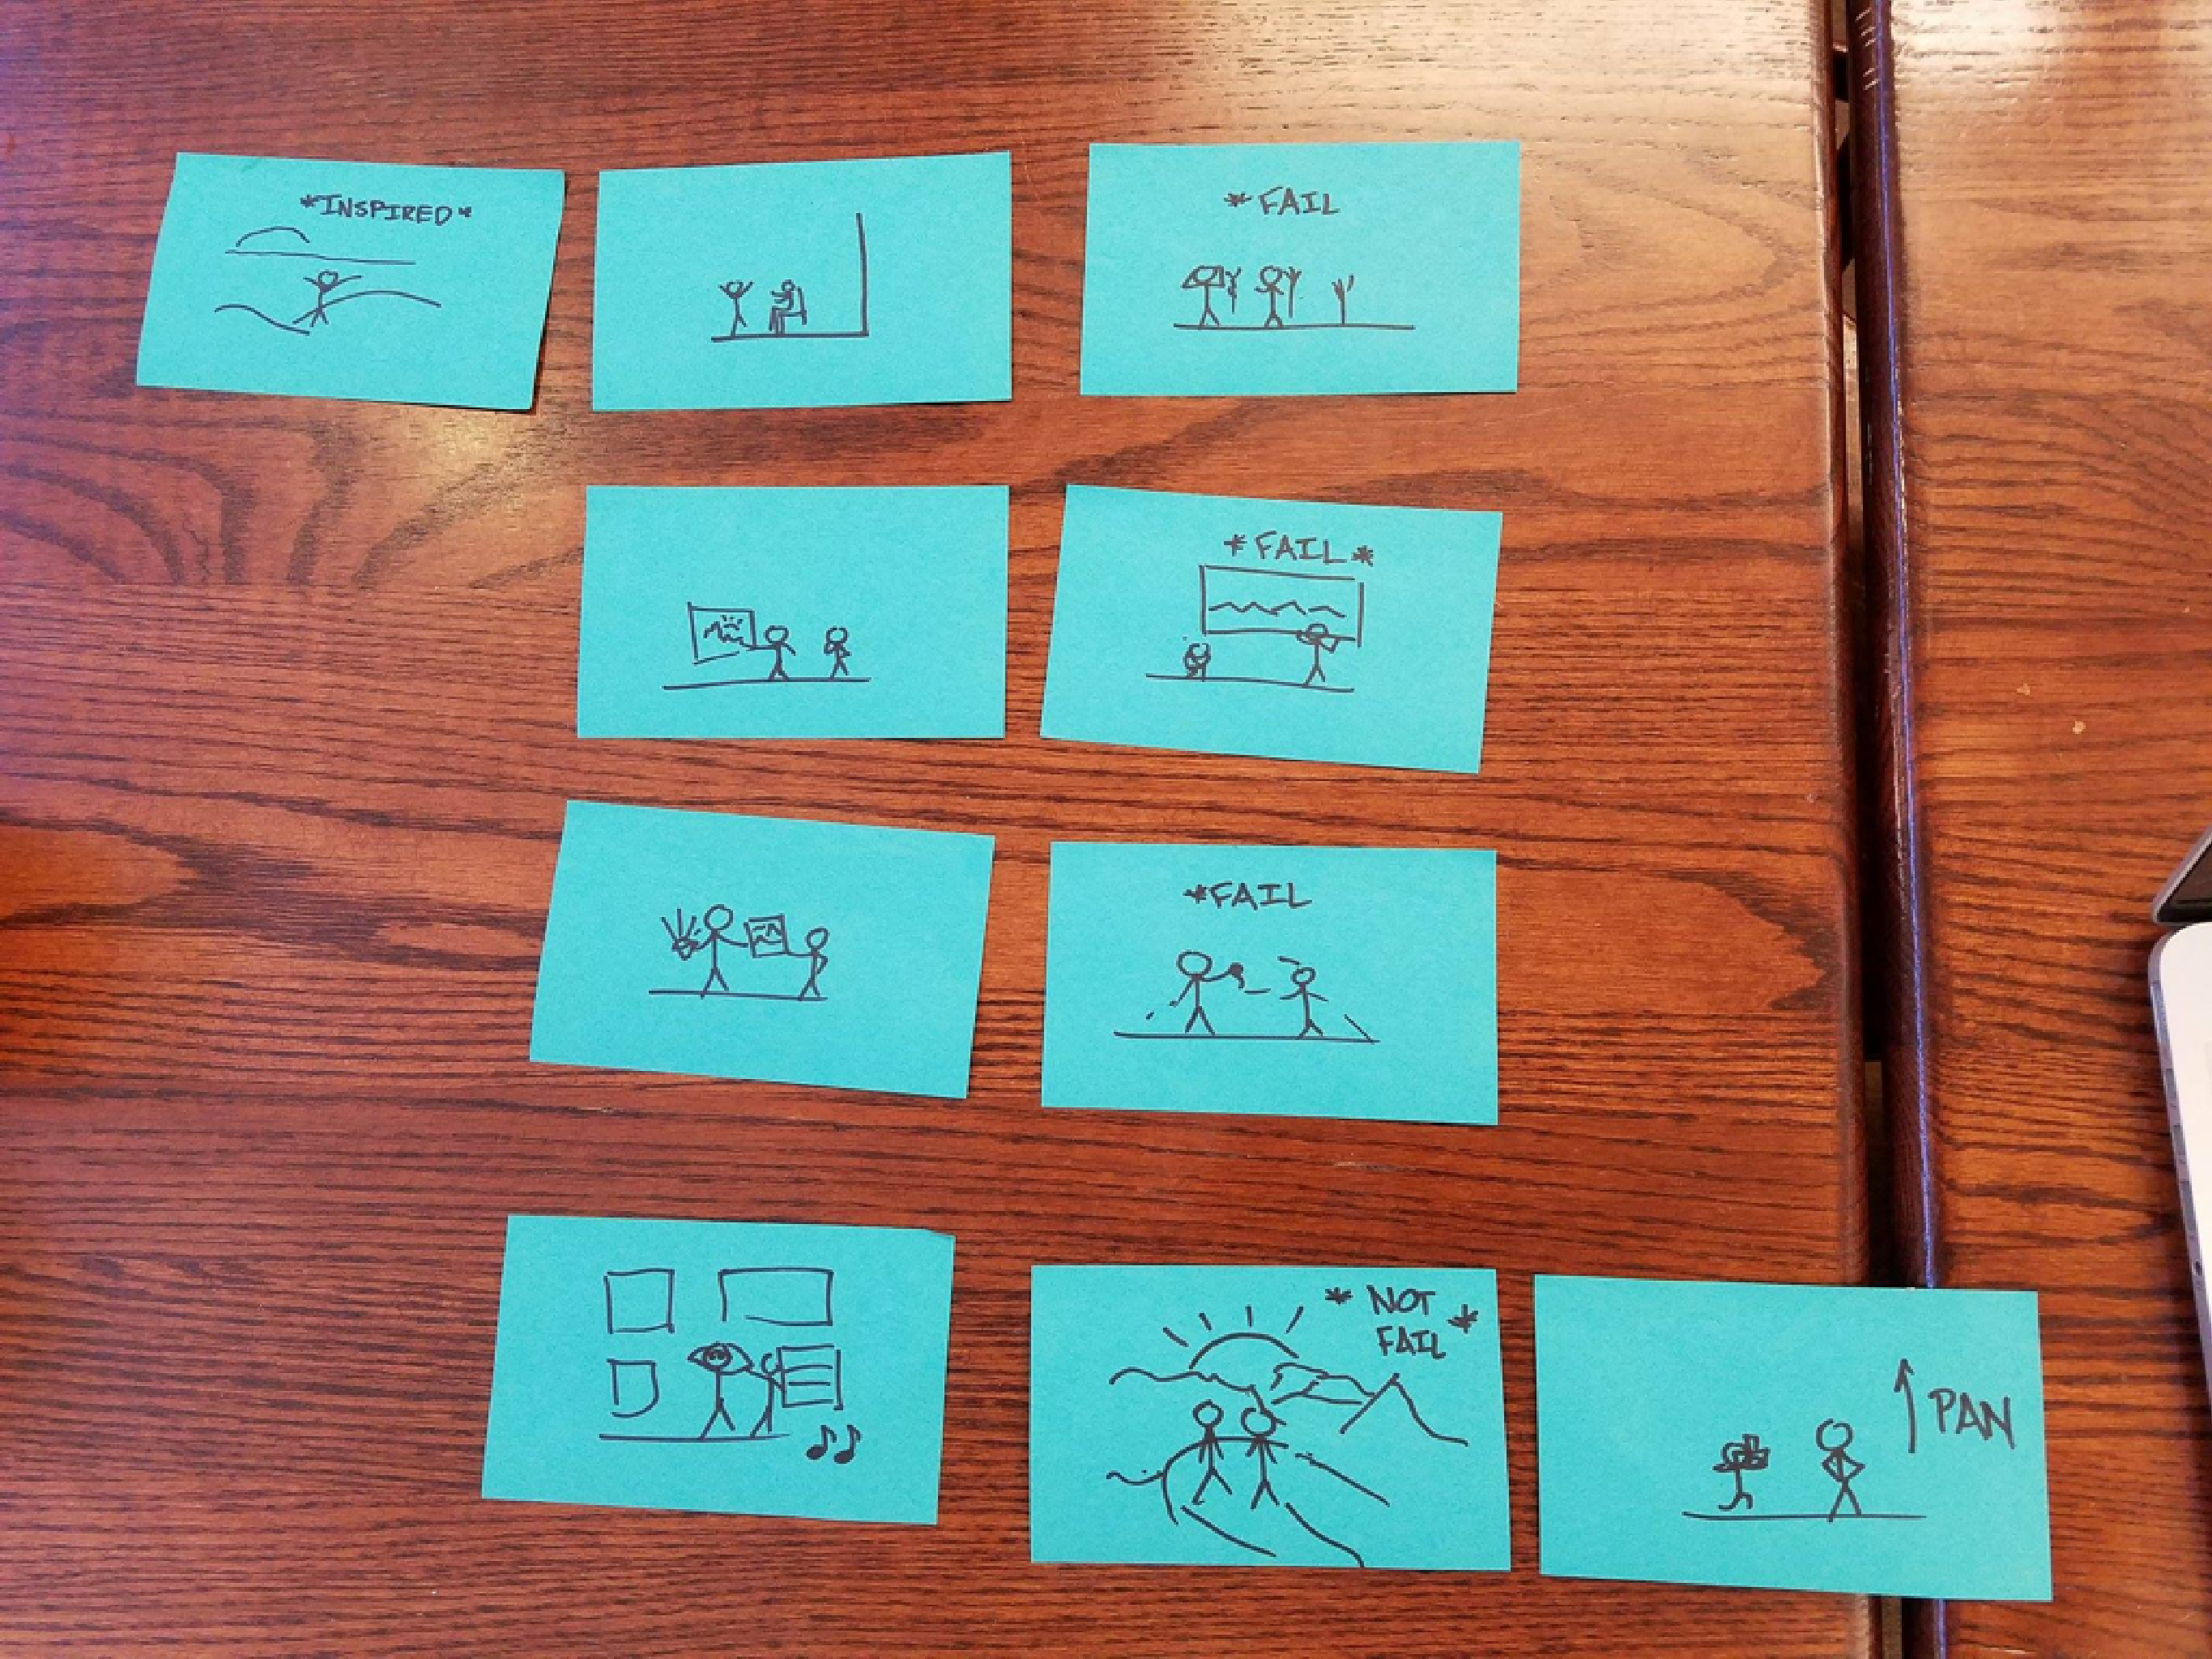 *INSPIRED*
*FAIL
*FAIL*
*FAIL
* NOT *
FAIL
PAN